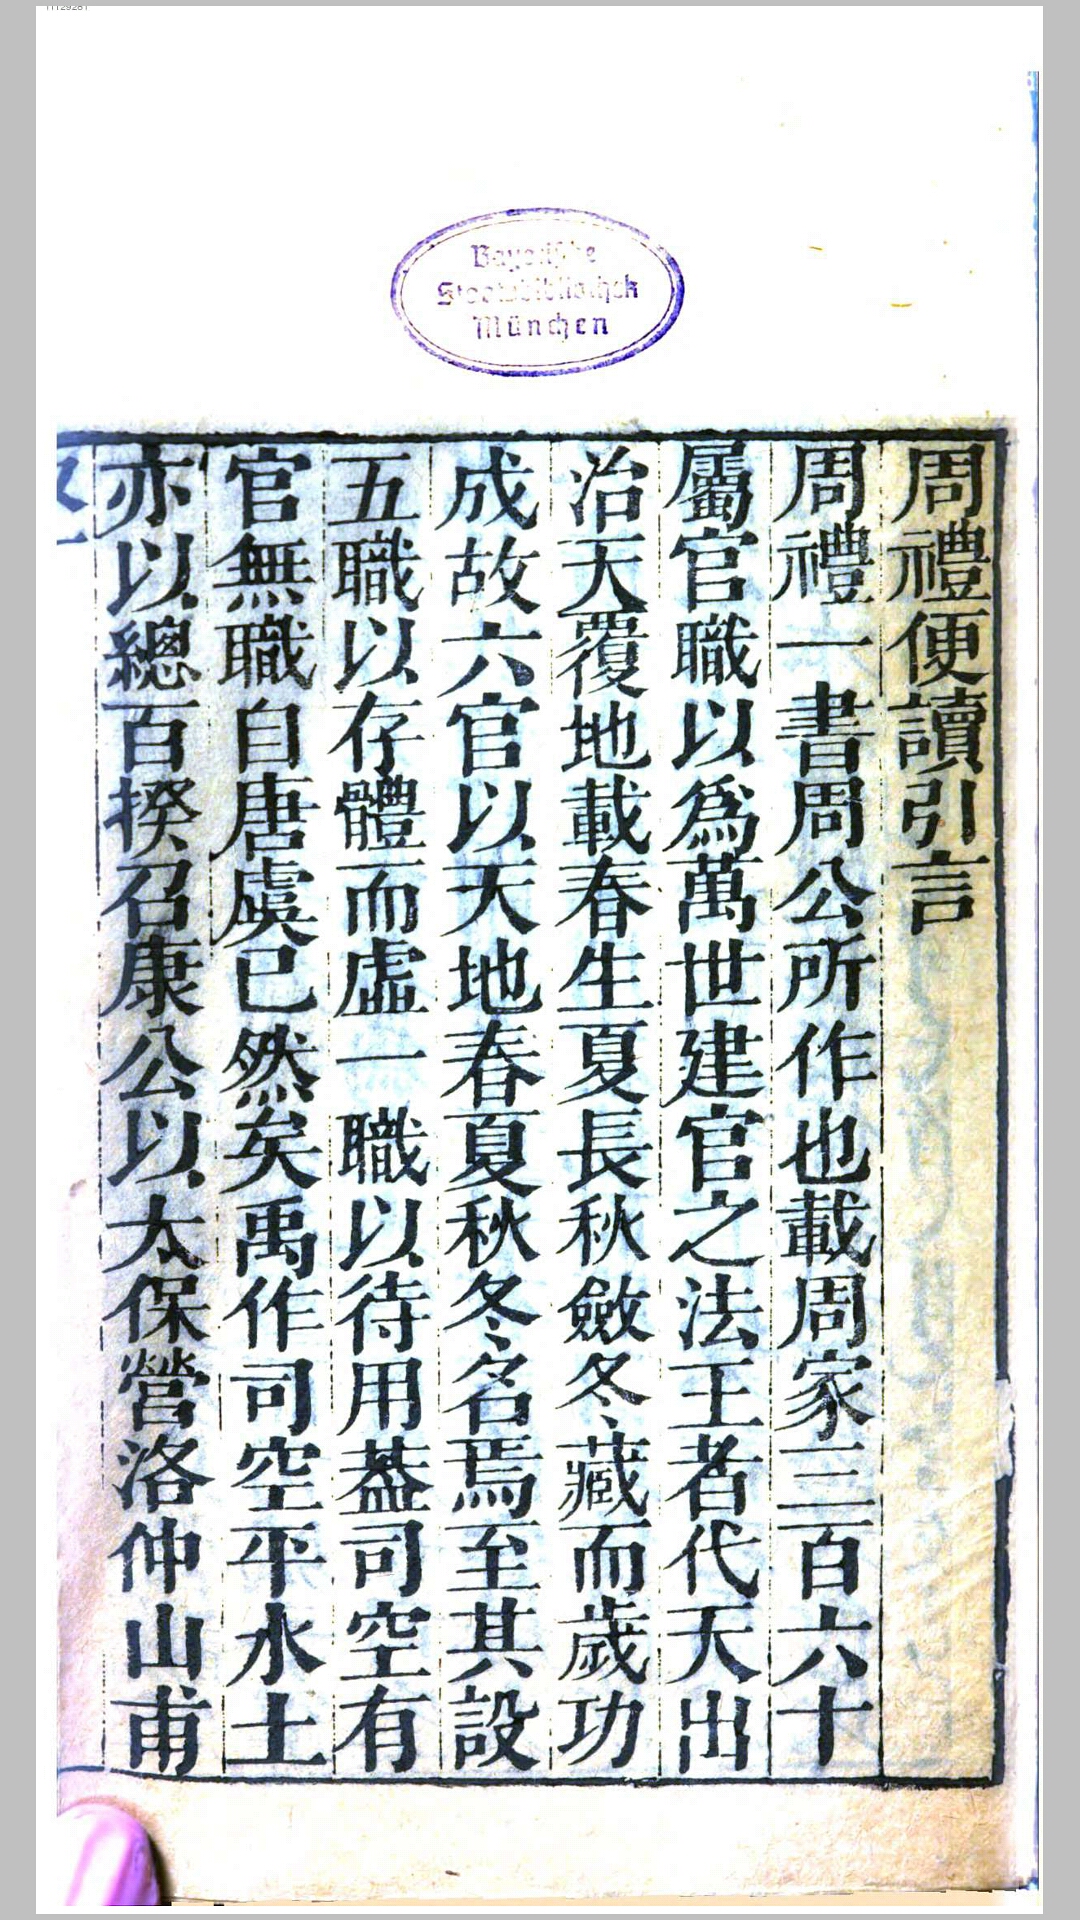 Bayerische
Staatsbibliothek
München
周禮便讀引言
周禮一書周公所作也載周家三百六十
屬官職以爲萬世建官之法王者代天出
治天覆地載春生夏長秋斂冬藏而歲功
成故六官以天地春夏秋冬名焉至其設
五職以存體而虛一職以待用葢司空有
官無職自唐虞已然矣禹作司空平水土
亦以總百揆召康公以太保營洛仲山甫